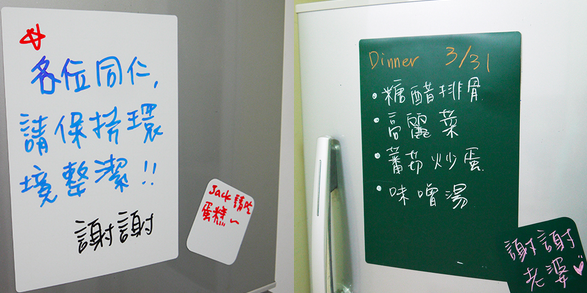 各位同仁,
請保持環
境整潔!!
謝謝
Jack 請吃
蛋糕~
Dinner 3/31
• 糖醋排骨
• 高麗菜
• 蕃茄炒蛋
• 味噌湯
謝謝
老婆♡